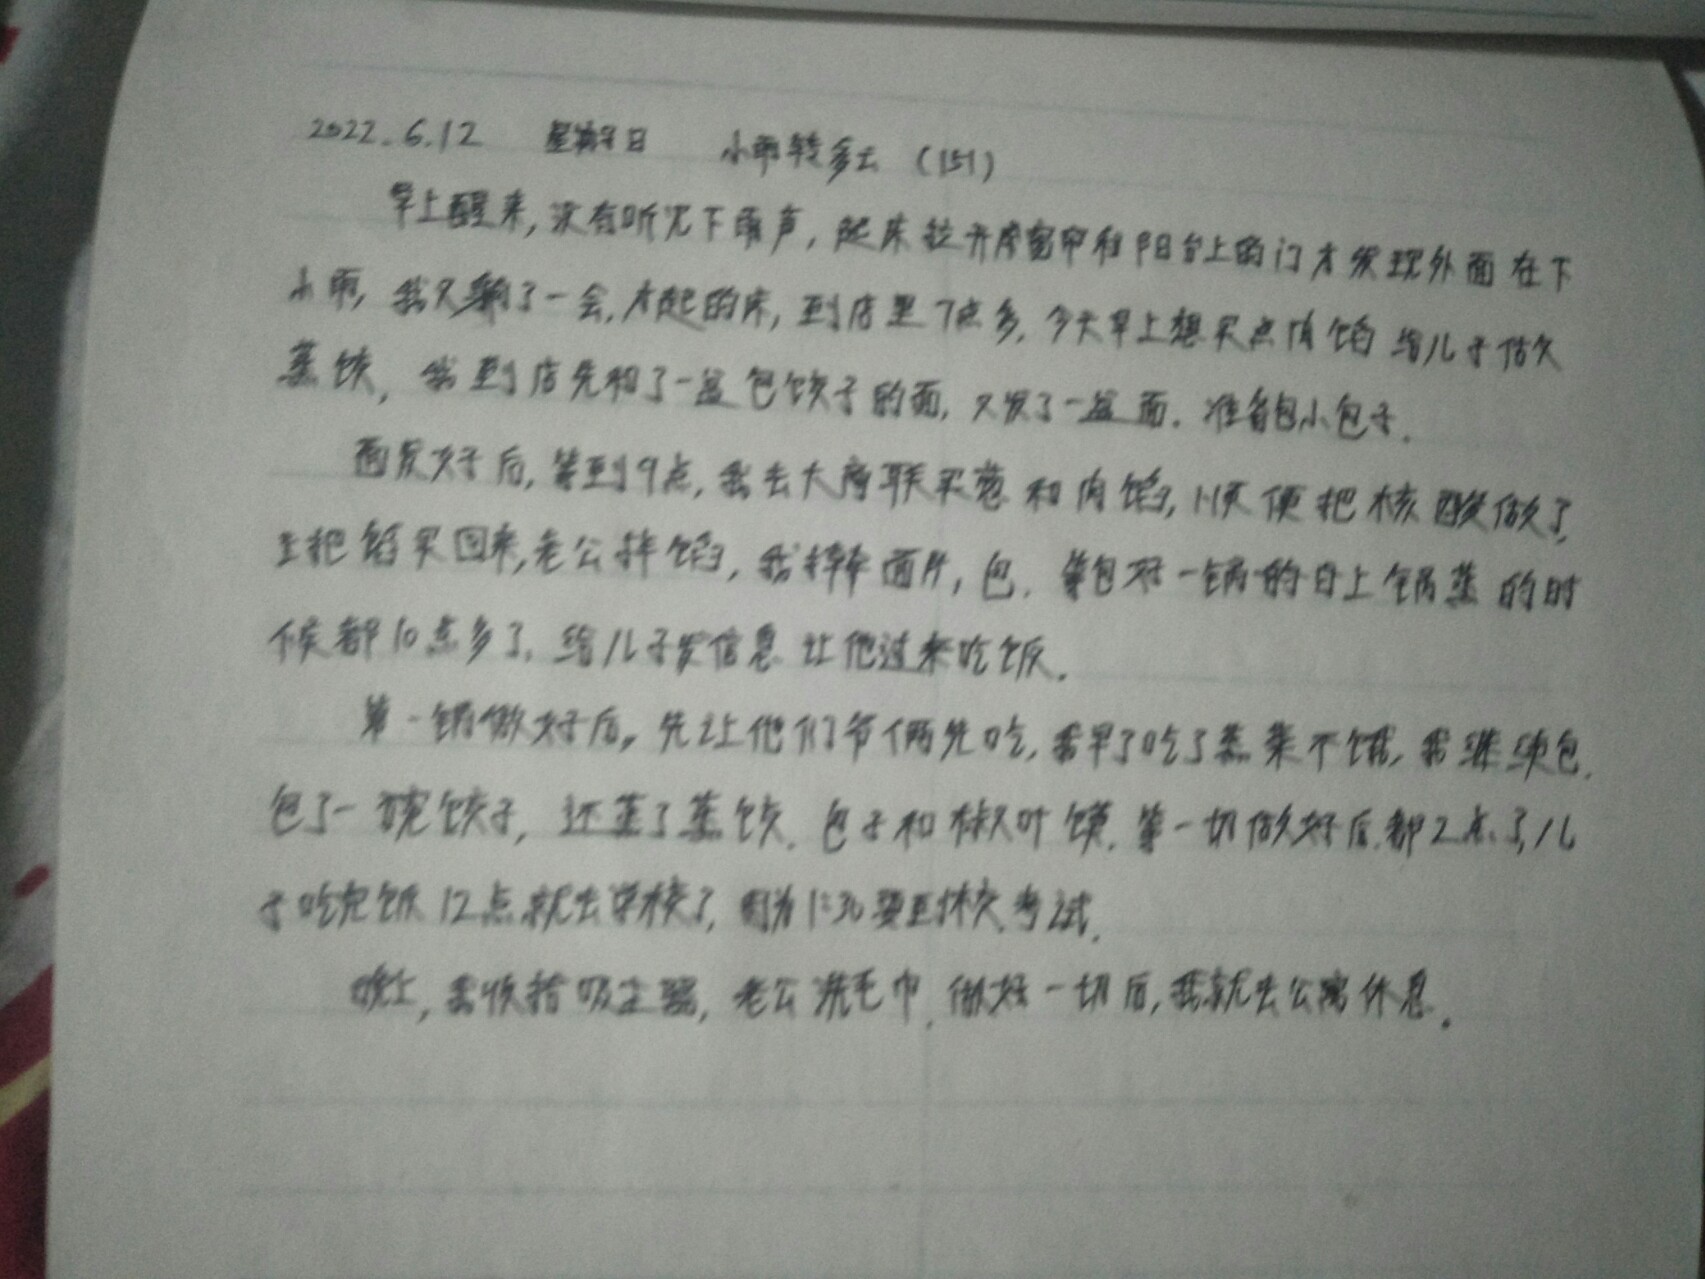 2022.6.12 星期日 小雨转多云 (151)
早上醒来,没有听见下雨声,起床拉开窗帘和阳台上的门才发现外面在下
小雨,我又躺了一会,才起的床,到店里7点多,今天早上想买点肉馅给儿子做
蒸饺,我到店先和了一盆包饺子的面,又发了一盆面.准备包小包子.
面发好后,等到9点,我去大商联买葱和肉馅,顺便把核酸做了,
把馅买回来,老公拌馅,我擀面片,包.等包好一锅的时上锅蒸的时
候都10点多了.给儿子发信息让他过来吃饭.
第一锅做好后,先让他们爷俩先吃,我早了吃了蒸菜不饿,我继续包.
包了一碗饺子,还蒸了蒸饺.包子和椒叶馍.等一切做好后.都2点了,儿
子吃完饭12点就去学校了,因为1:30要到校考试.
晚上,我收拾吸尘器,老公洗毛巾,做好一切后,我就去公寓休息.